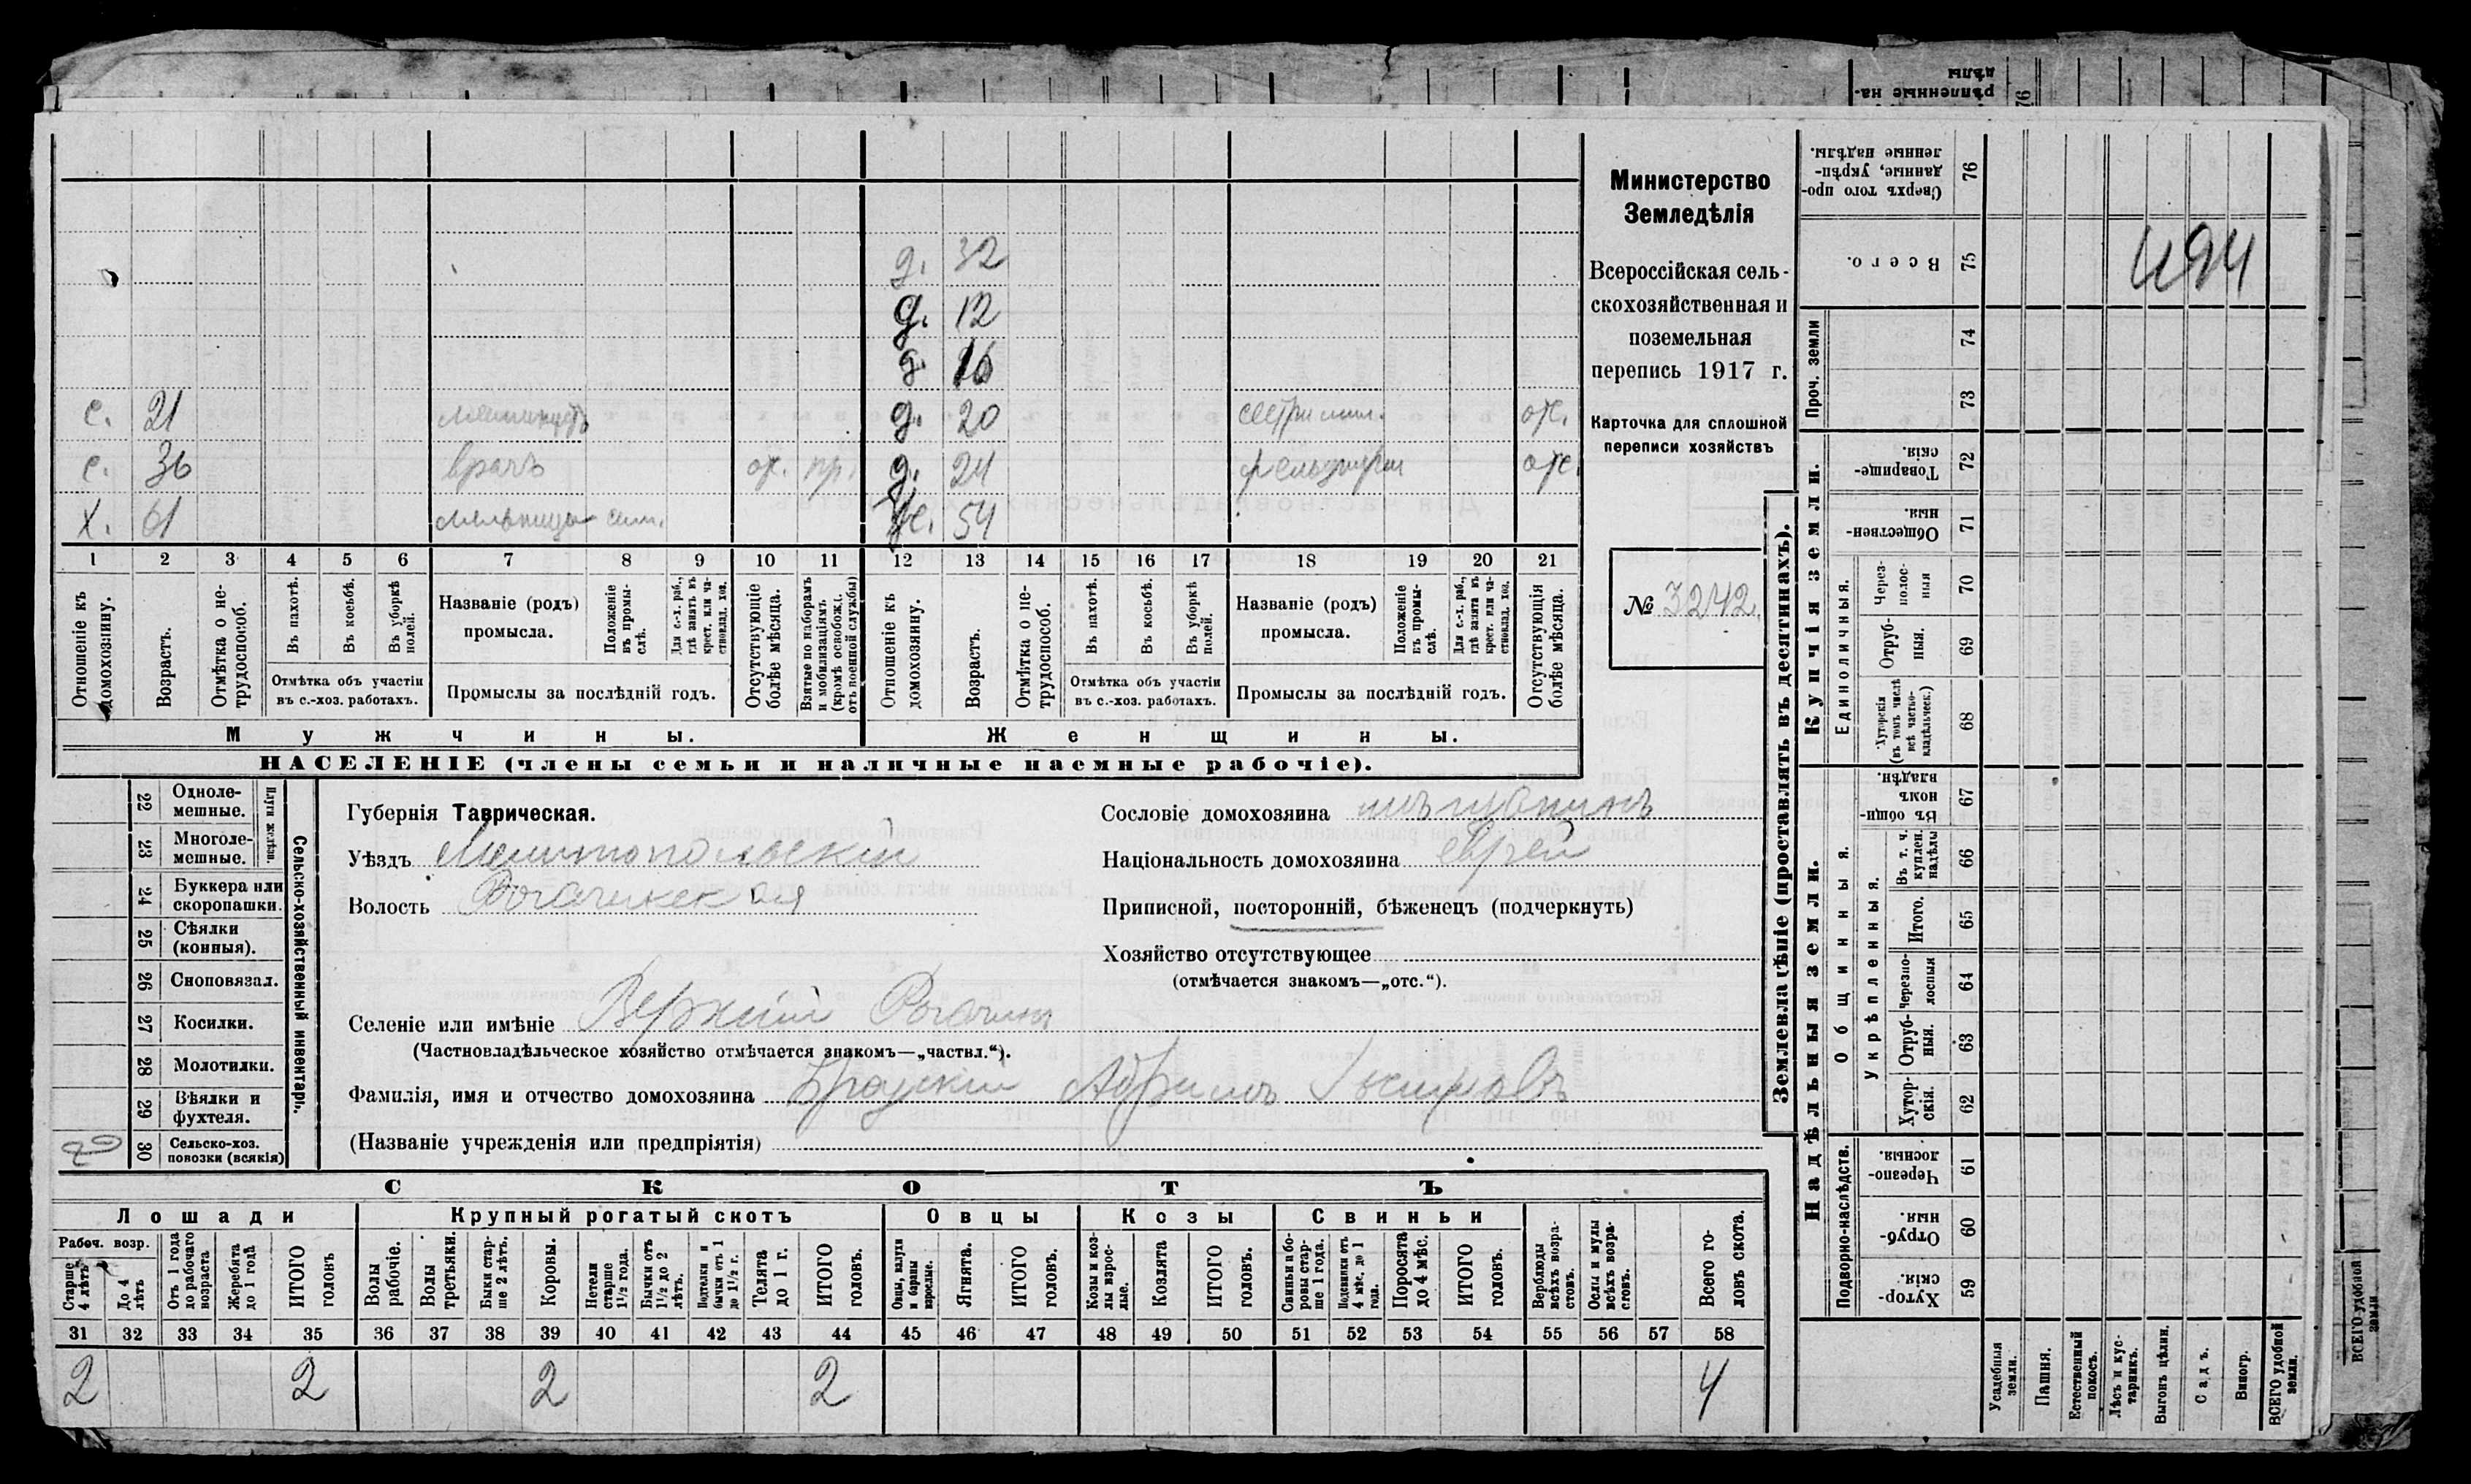 д. 32
д. 12
д 16
с. 21 д. 20 сестра мил. от.
с. 36 врачъ от. пр. д. 24 от.
х. 61 ж. 54
1 2 3 4 5 6 7 8 9 10 11 12 13 14 15 16 17 18 19 20 21
Отношеніе къ домохозяину.
Возрастъ.
Отмѣтка о нетрудоспособ.
Въ пахотѣ.
Въ косьбѣ.
Въ уборкѣ полей.
Отмѣтка объ участіи въ с.-хоз. работахъ.
Названіе (родъ) промысла.
Положеніе въ промыслѣ.
Для с.-х. раб., гдѣ занятъ въ крест. или частновлад. хоз.
Промыслы за послѣдній годъ.
Отсутствующіе болѣе мѣсяца.
Взятые по наборамъ и мобилизаціямъ (кромѣ освобожд. отъ военной службы)
Отношеніе къ домохозяину.
Возрастъ.
Отмѣтка о нетрудоспособ.
Въ пахотѣ.
Въ косьбѣ.
Въ уборкѣ полей.
Отмѣтка объ участіи въ с.-хоз. работахъ.
Названіе (родъ) промысла.
Положеніе въ промыслѣ.
Для с.-х. раб., гдѣ занята въ крест. или частновлад. хоз.
Промыслы за послѣдній годъ.
Отсутствующія болѣе мѣсяца.
Мужчины.
Женщины.
НАСЕЛЕНІЕ (члены семьи и наличные наемные рабочіе).
Министерство
Земледѣлія
Всероссійская сель-
скохозяйственная и
поземельная
перепись 1917 г.
Карточка для сплошной
переписи хозяйствъ
№ 3242.
22 Однолемешные.
23 Многолемешные.
24 Буккера или скоропашки.
25 Сѣялки (конныя).
26 Сноповязал.
27 Косилки.
28 Молотилки.
29 Вѣялки и фухтеля.
30 Сельско-хоз. повозки (всякія)
Сельско-хозяйственный инвентарь.
Губернія Таврическая.
Уѣздъ Мелитопольскій
Волость Рогачикская
Сословіе домохозяина мѣщанинъ
Національность домохозяина еврей
Приписной, посторонній, бѣженецъ (подчеркнуть)
Хозяйство отсутствующее
(отмѣчается знакомъ—„отс.“).
Селеніе или имѣніе Верхній Рогачикъ
(Частновладѣльческое хозяйство отмѣчается знакомъ—„частвл.“).
Фамилія, имя и отчество домохозяина Абрамъ
(Названіе учрежденія или предпріятія)
СКОТЪ
Лошади
Крупный рогатый скотъ
Овцы
Козы
Свиньи
Рабоч. возр.
Старше 4 лѣтъ
До 4 лѣтъ
Отъ 1 года до рабочаго возраста
Жеребята до 1 года
ИТОГО головъ
Волы рабочіе.
Волы третьяки.
Быки старше 2 лѣтъ.
Коровы.
Нетели старше 1½ года.
Бычки отъ 1½ до 2 лѣтъ.
Подтелки и бычки отъ 1 до 1½ г.
Телята до 1 г.
ИТОГО головъ.
Овцы, валухи и бараны взрослые.
Ягнята.
ИТОГО головъ.
Козы и козлы взрослые.
Козлята
ИТОГО головъ.
Свиньи и боровы старше 1 года.
Подсвинки отъ 4 мѣс. до 1 года.
Поросята до 4 мѣс.
ИТОГО головъ.
Верблюды всѣхъ возрастовъ.
Ослы и мулы всѣхъ возрастовъ.
Всего головъ скота.
31 32 33 34 35 36 37 38 39 40 41 42 43 44 45 46 47 48 49 50 51 52 53 54 55 56 57 58
2 2 2 2 4
Землевладѣніе (проставлять въ десятинахъ).
Надѣльныя земли.
Купчія земли.
Проч. земли
Подворно-наслѣдств.
Общинныя.
Укрѣпленныя.
Единоличныя.
59 Хуторскія.
60 Отрубныя.
61 Черезполосныя.
62 Хуторскія.
63 Отрубныя.
64 Черезполосныя
65 Итого.
66 Въ т. ч. куплен. надѣлы
67 Въ общинномъ владѣн.
68 Хуторскія (въ томъ числѣ всѣ частновладѣльческ.)
69 Отрубныя.
70 Черезполосныя
71 Общественныя.
72 Товарищескія.
73
74
75 Всего.
76 Сверхъ того проданные, укрѣпленные надѣлы.
494
Усадебныя земли.
Пашня.
Естественный покосъ.
Лѣсъ и кустарникъ.
Выгонъ цѣлин.
Садъ.
Виногр.
ВСЕГО удобной земли.
ВСЕГО удобной земли